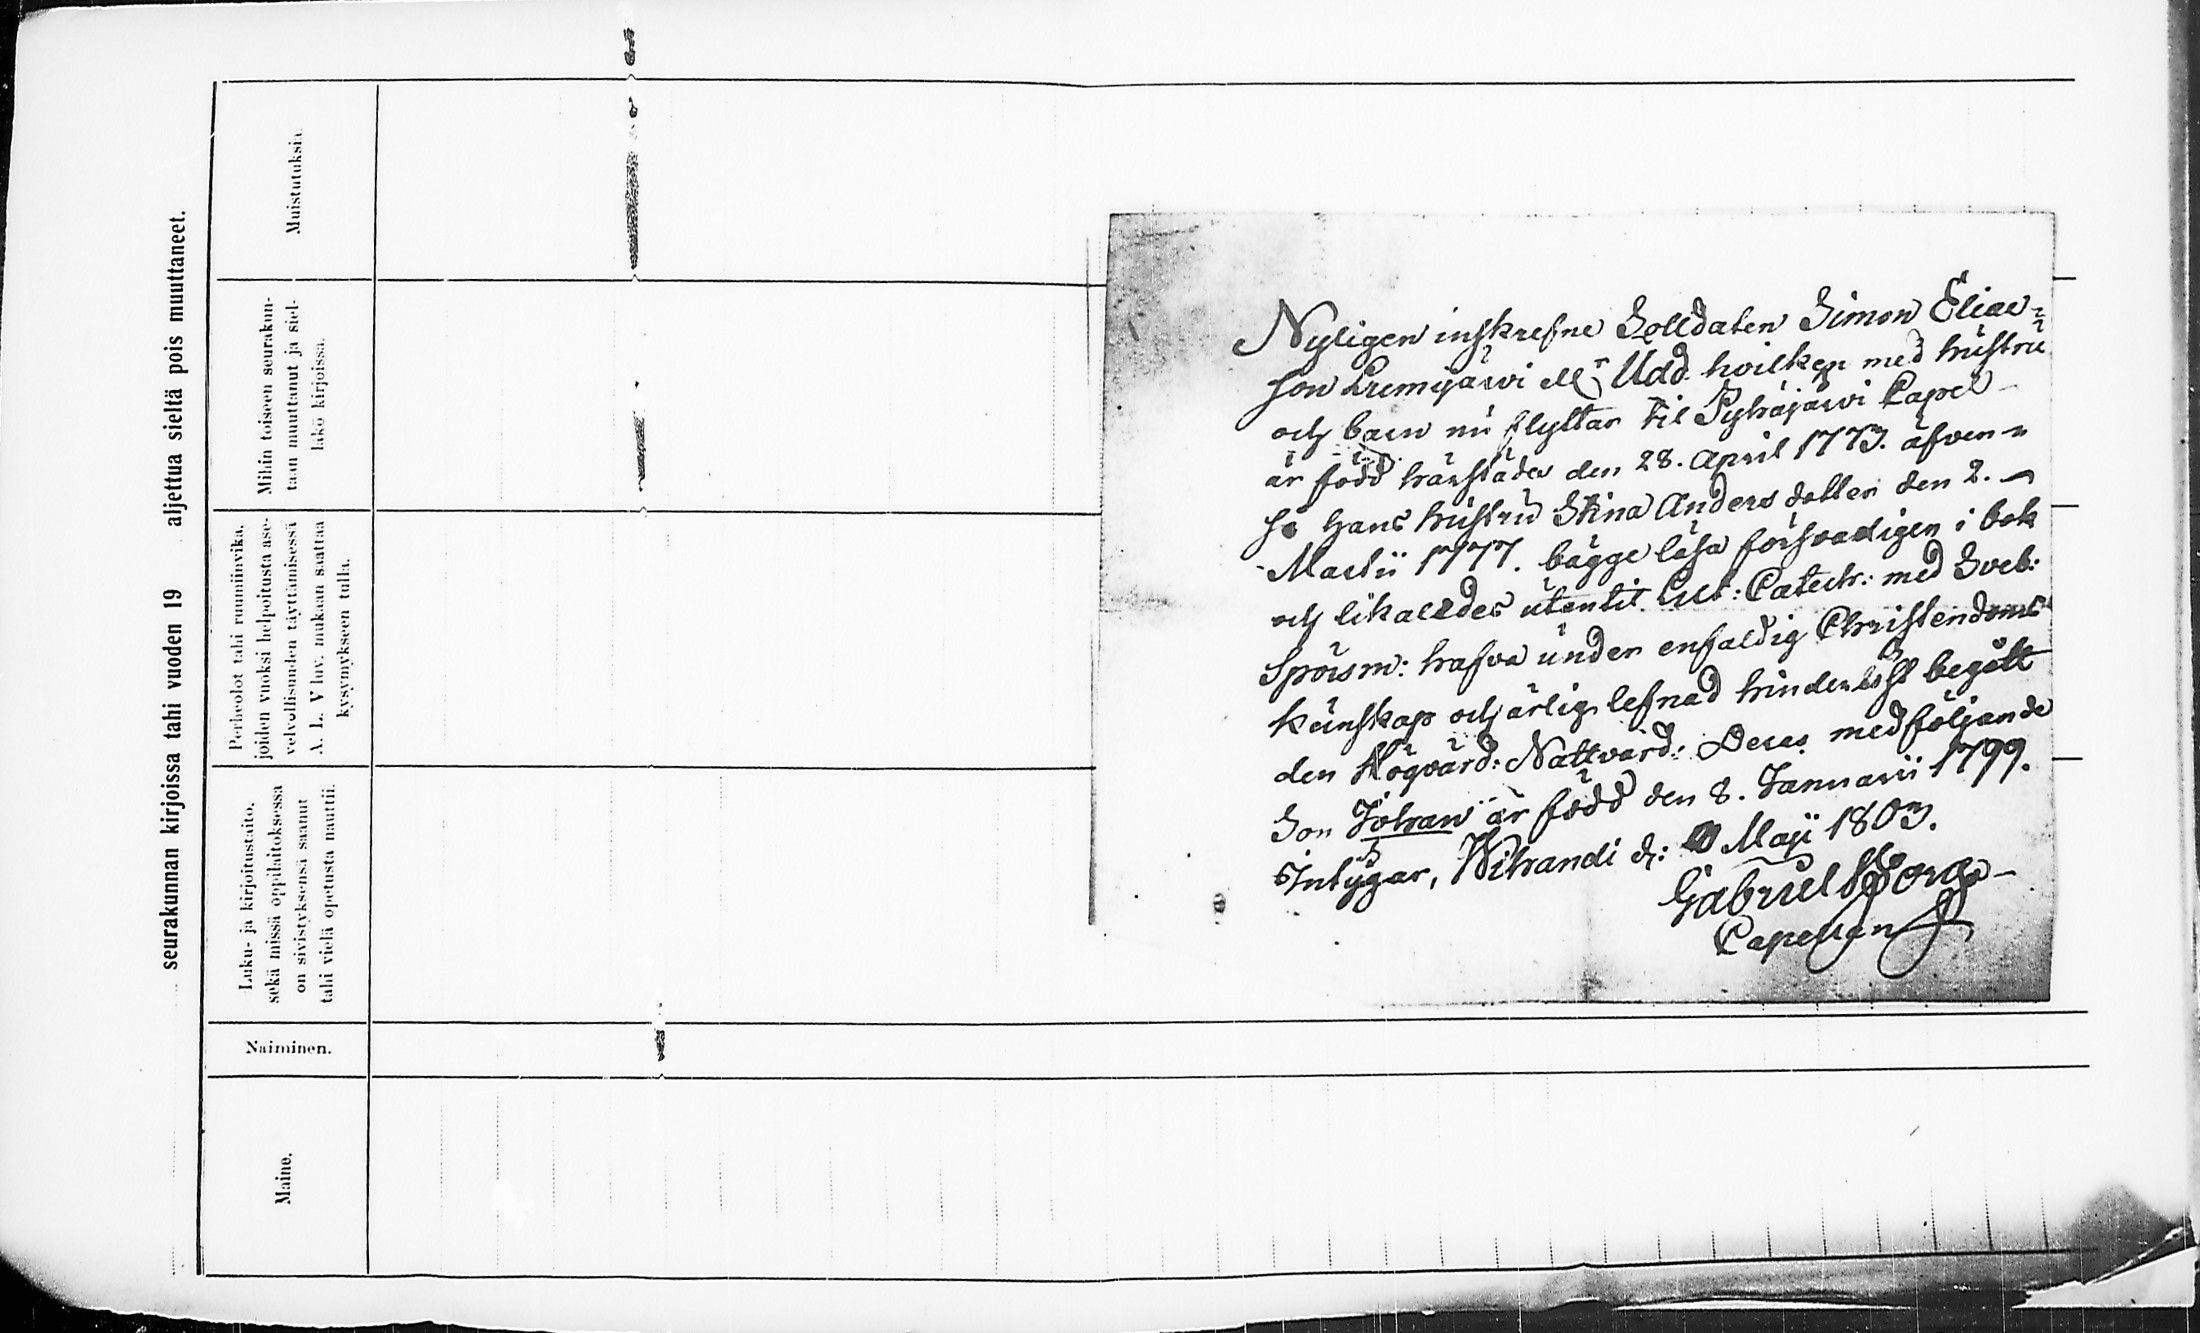 seurakunnan kirjoissa tahi vuoden 19 aljettua sieltä pois muuttaneet.
Muistutuksia.
Mihin toiseen seurakun-
taan muuttanut ja siel-
läkö kirjoissa.
Perheolot tahi ruumiinvika,
joiden vuoksi helpoitusta ase-
velvollisuuden täyttämisessä
A. L. V luv. mukaan saattaa
kysymykseen tulla.
Luku- ja kirjoitustaito,
sekä missä oppilaitoksessa
on sivistyksensä saanut
tahi vielä opetusta nauttii.
Naiminen.
Maine.
Nyligen inskrefne Solldaten Simon Eliae-
son Lremijärvi Mr Udd hvilken med hustru
och barn nu flyttar til Pyhäjärvi Capel
är född härstädes den 28. April 1773. äfven-
så hans hustru Stina Andersdotter den 2.
Martii 1777. bägge läsa försvarligen i bok
och likaledes utantil Lut: Catech: med Sveb:
Spörsm: hafva under enfaldig Christendoms
kunskap och ärlig lefnad hinderlöst begått
den Högvärd: Nattvard: Deras medföljande
Son Johan är född den 8. Januarii 1799.
Intygar, Wihandi d: Maji 1803.
Gabriel
Capellan